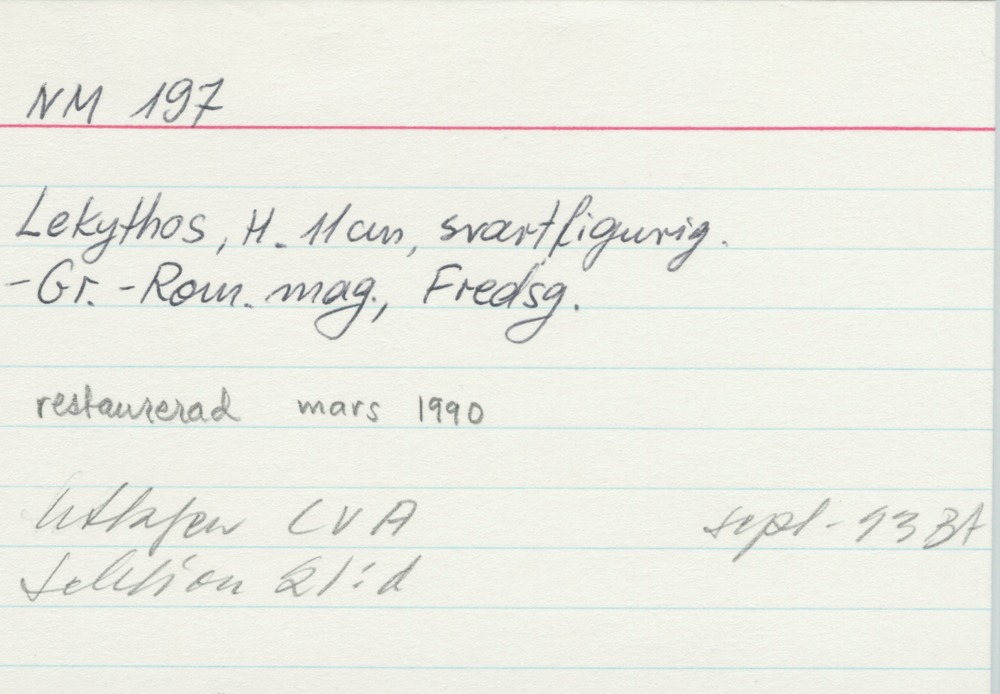 NM 197
Lekythos, H. 11 cm, svartfigurig.
-Gr.-Rom. mag., Fredsg.
restaurerad mars 1990
CVA sept - 93 BA
Sektion 21:d